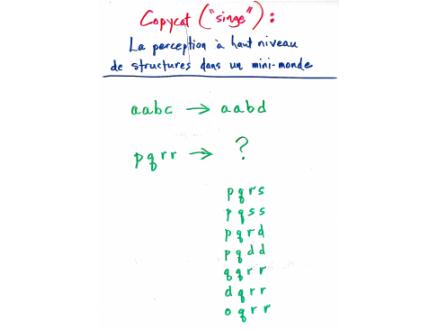 Copycat ("singe") :
La perception à haut niveau
de structures dans un mini-monde
aabc → aabd
pqrr → ?
pqrs
pqss
pqrd
pqdd
qqrr
dqrr
oqrr